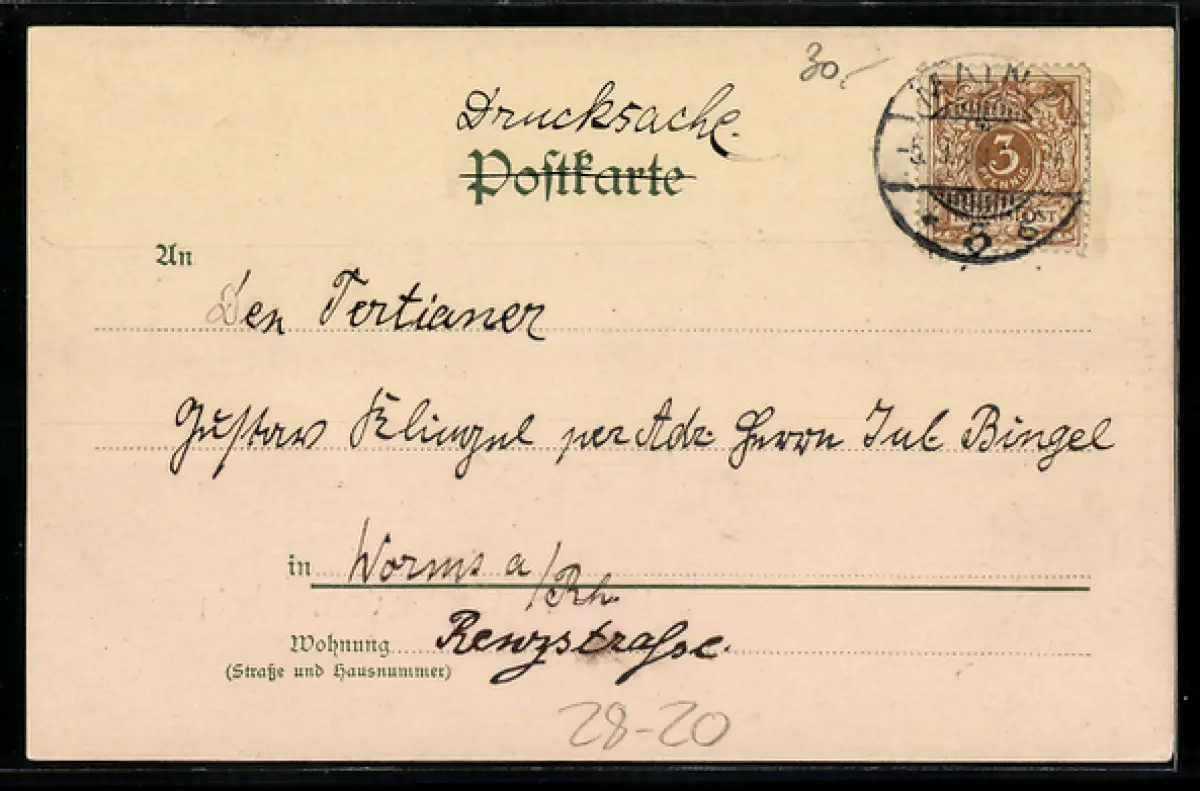 30,-
Drucksache.
Postkarte
MAINZ
3
PFENNIG
REICHSPOST
An
Den Tertianer
Gustav Klingel per Adr. Herrn Jul. Bingel
in Worms a/Rh.
Wohnung Renzstraße.
(Straße und Hausnummer)
28-20